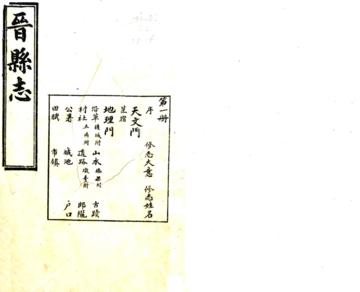 晉縣志
第一册
序 修志大意 修志姓名
天文門
星宿
地理門
沿革 疆域附 山水 橋梁附 古蹟
村社 道路 邱隴
公署 城池 户口
田賦 市鎮